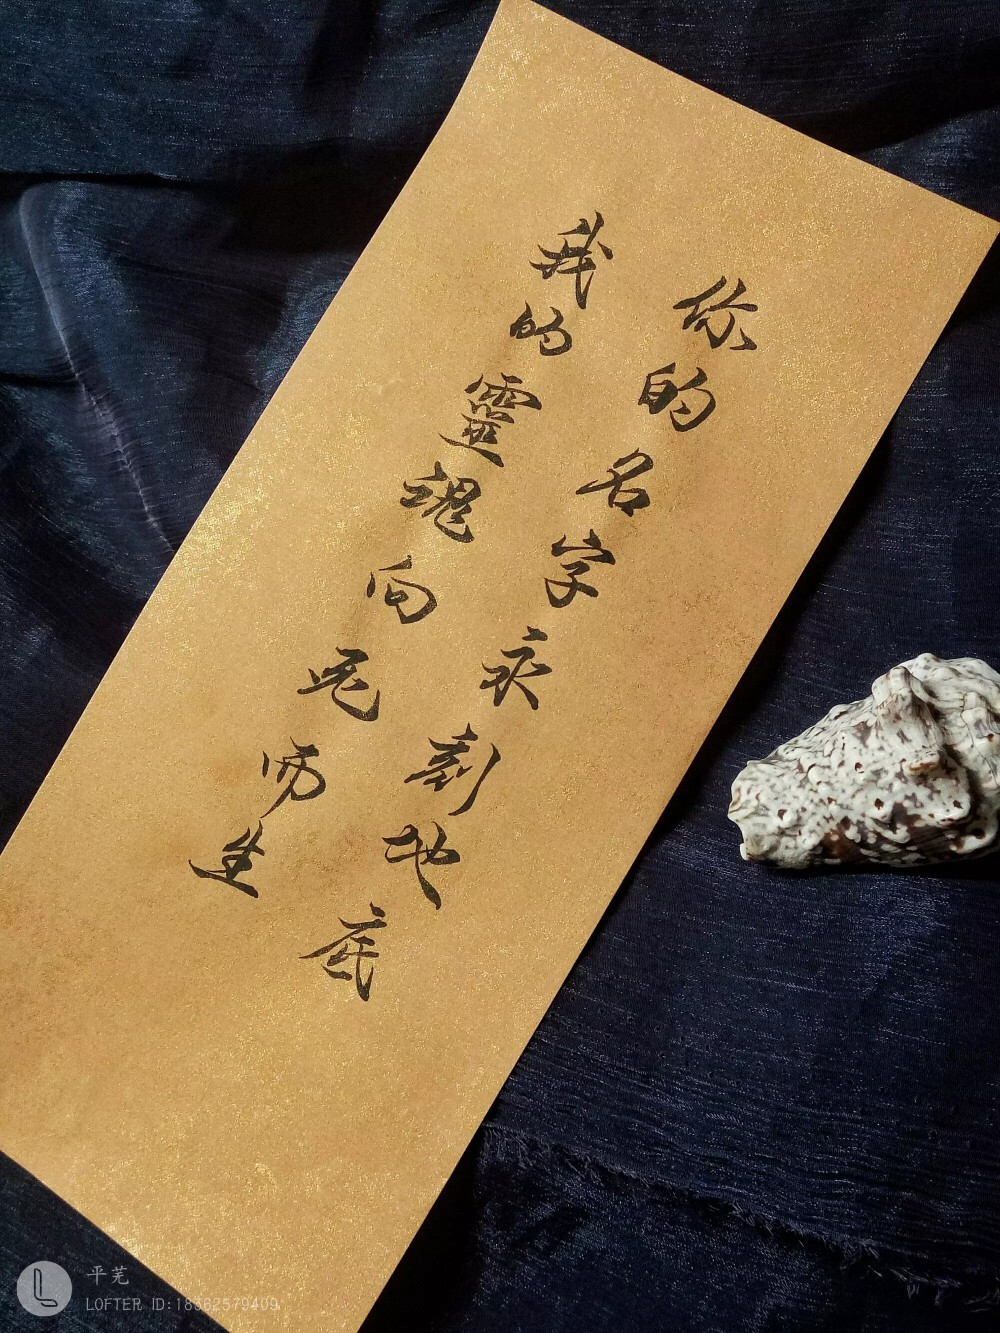 你的名字永刻地底
我的靈魂向死而生
平芜
LOFTER ID:18362579409